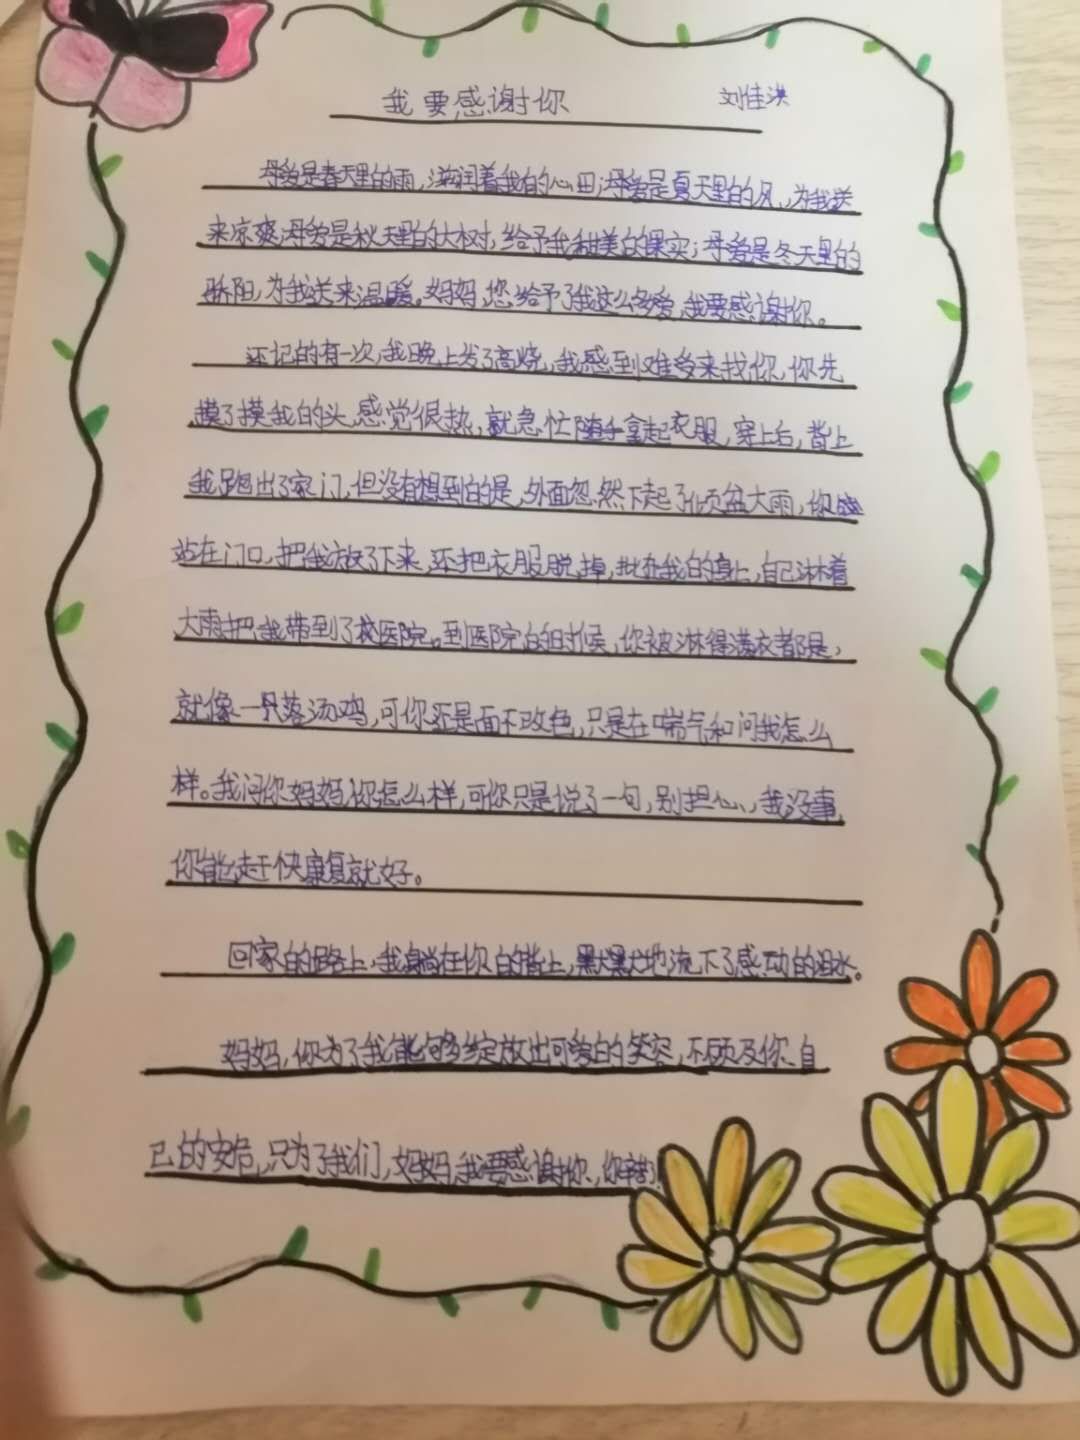 我要感谢你 刘佳淇
母爱是春天里的雨，滋润着我的心田；母爱是夏天里的风，为我送
来凉爽；母爱是秋天里的大树，给予我甜美的果实；母爱是冬天里的
骄阳，为我送来温暖。妈妈，您给予了我这么多爱，我要感谢你。
还记的有一次，我晚上发了高烧，我感到难受来找你，你先
摸了摸我的头，感觉很热，就急忙随手拿起衣服，穿上后，背上
我跑出了家门，但没有想到的是，外面忽然下起了倾盆大雨，你
站在门口，把我放了下来，还把衣服脱掉，批在我的身上，自己淋着
大雨把我带到了医院。到医院的时候，你被淋得满衣都是，
就像一只落汤鸡，可你还是面不改色，只是在喘气和问我怎么
样。我问你妈妈你怎么样，可你只是说了一句，别担心，我没事，
你能赶快康复就好。
回家的路上，我躺在你的背上，默默地流下了感动的泪水。
妈妈，你为了我能够绽放出可爱的笑容，不顾及你自
己的安危，只为了我们，妈妈，我要感谢你，你辛苦了！